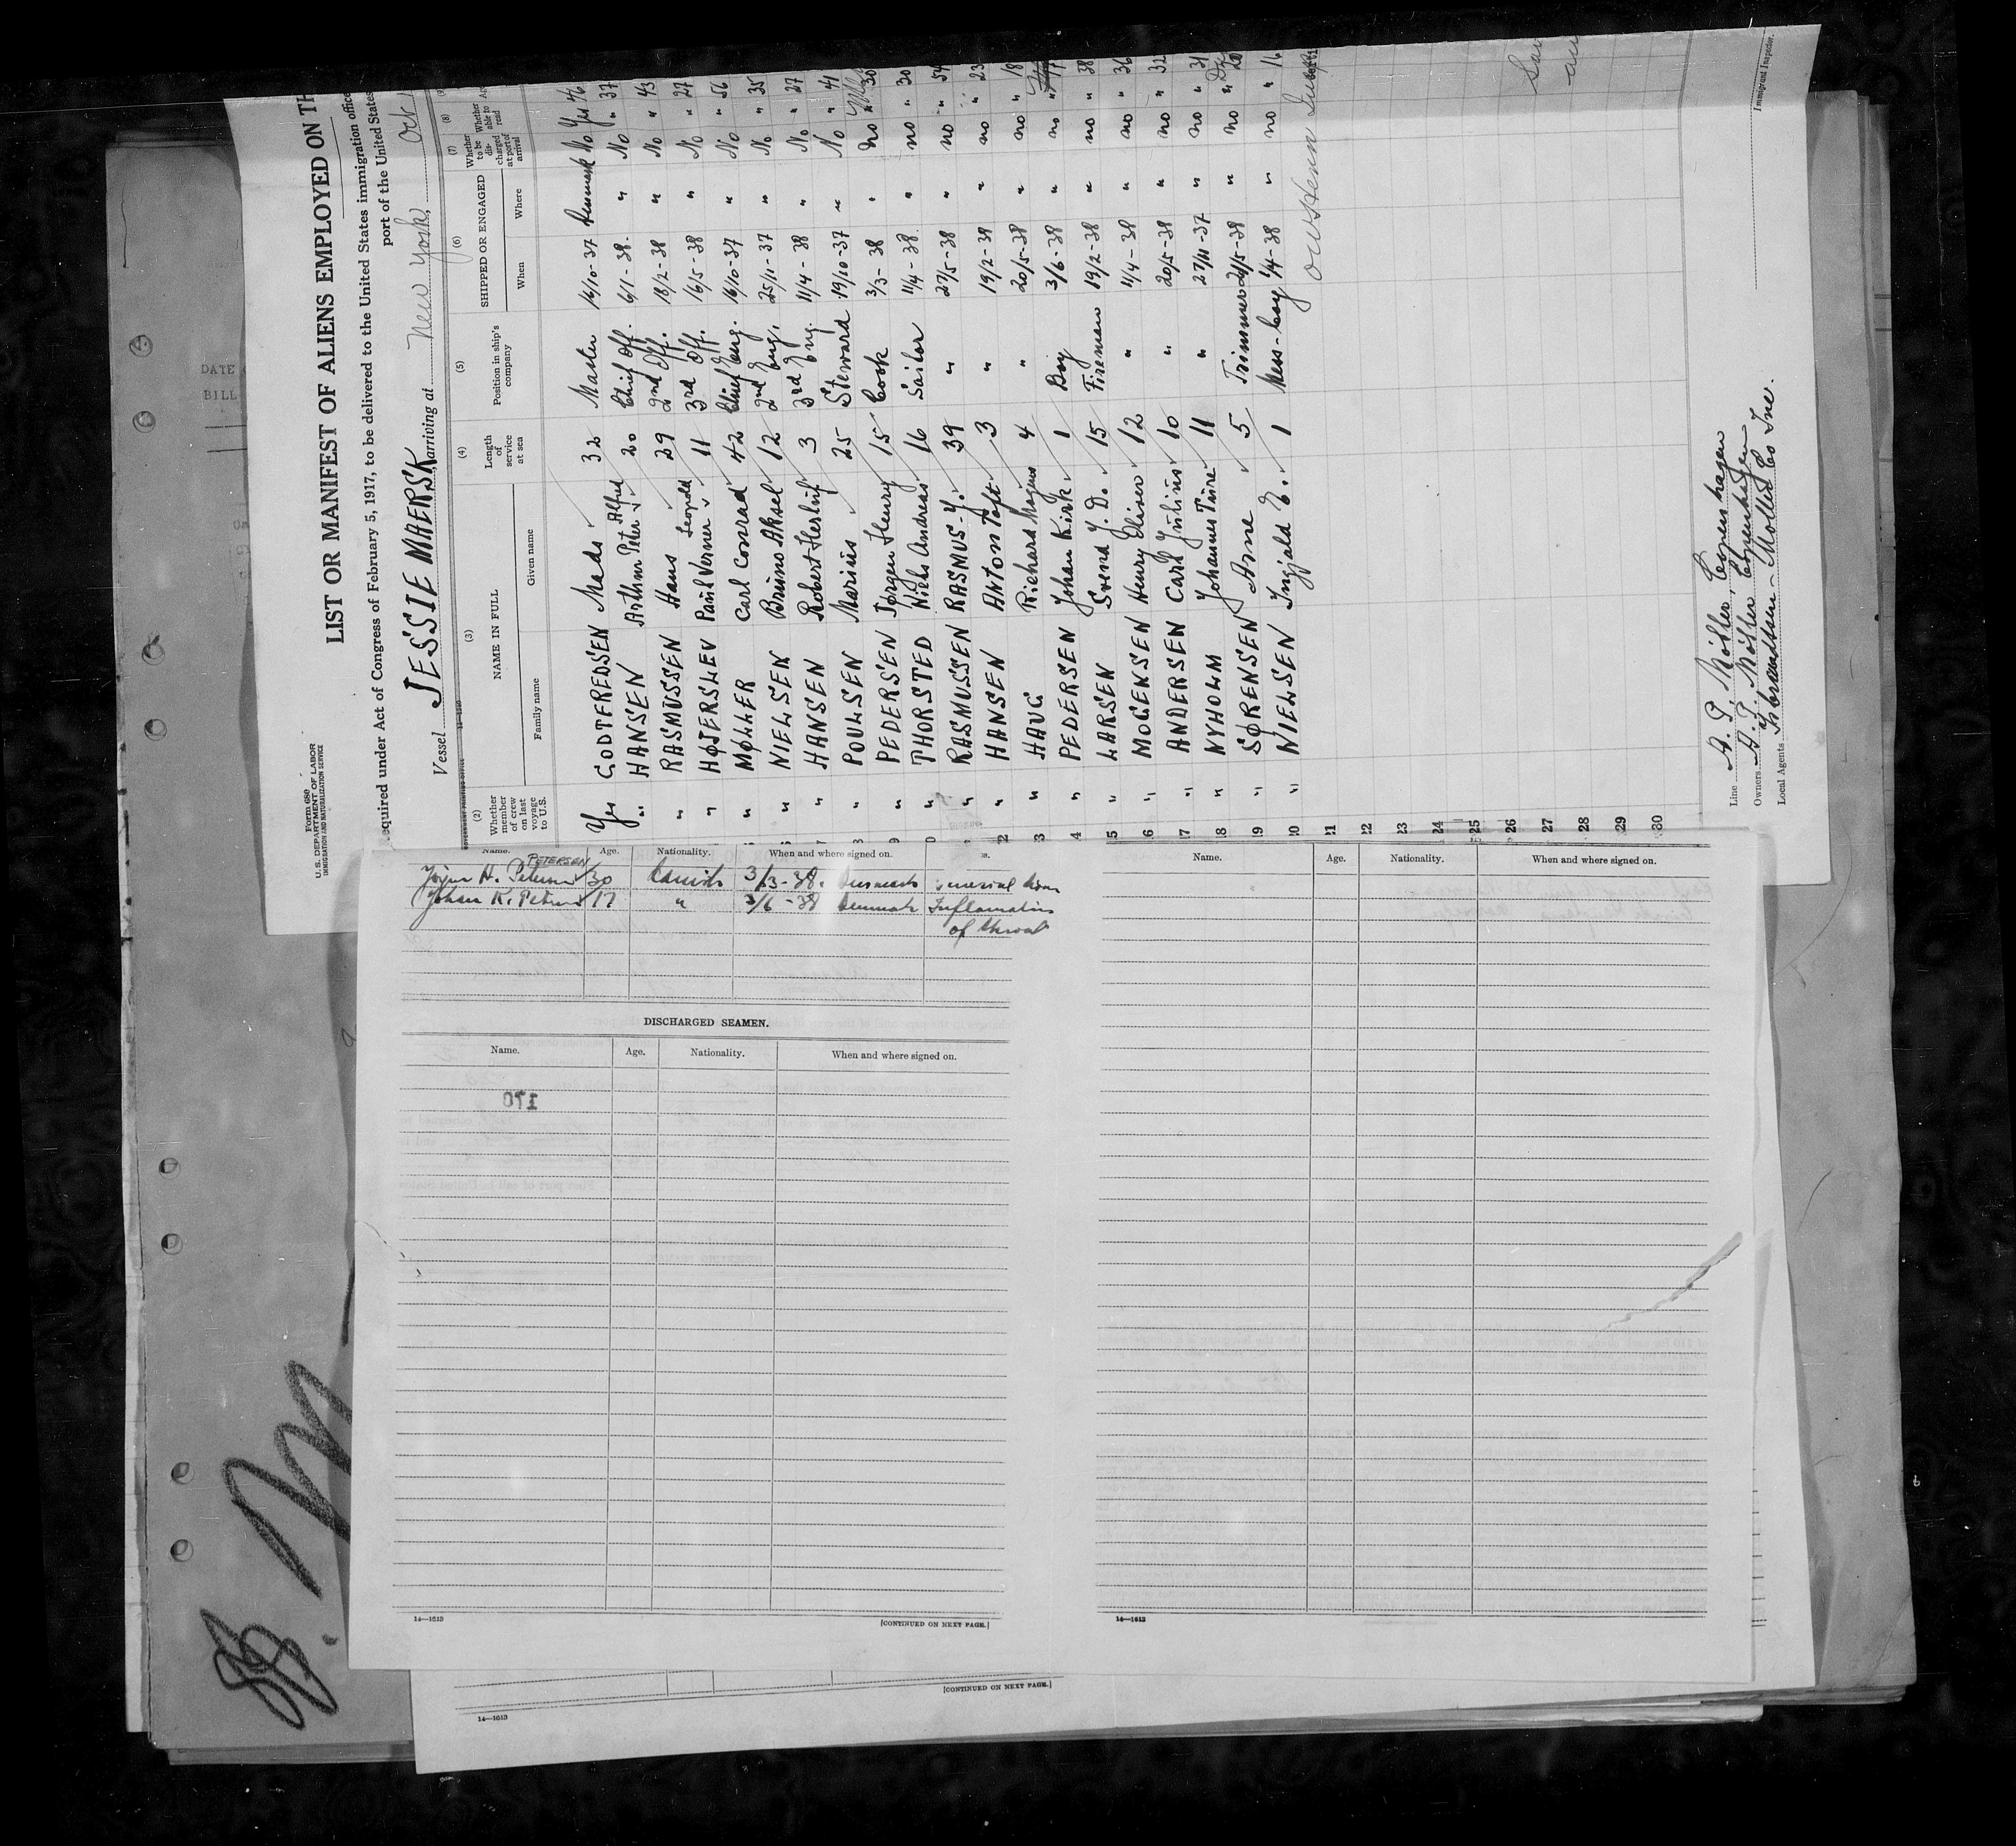 Form 680
U. S. DEPARTMENT OF LABOR
IMMIGRATION AND NATURALIZATION SERVICE
LIST OR MANIFEST OF ALIENS EMPLOYED ON TH
equired under Act of Congress of February 5, 1917, to be delivered to the United States immigration office
port of the United States
Vessel JESSIE MAERSK arriving at New York, Oct
(2) (3) (4) (5) (6) (7) (8)
Whether member of crew on last voyage to U.S. NAME IN FULL Family name Given name Length of service at sea Position in ship's company SHIPPED OR ENGAGED When Where Whether to be discharged at port of arrival Whether able to read
Yes GODTFREDSEN Mads 32 Master 16/10-37 Denmark No Yes 46
" HANSEN Arthur Peter Alfred 20 Chief Off. 6/1-38 " No " 37
" RASMUSSEN Hans 29 2nd Off. 18/2-38 " No " 43
" HØJERSLEV Paul Verner Leopold 11 3rd Off. 16/5-38 " No " 27
" MØLLER Carl Conrad 42 Chief Eng. 16/10-37 " No " 56
" NIELSEN Bruno Aksel 12 2nd Eng. 25/11-37 " No " 35
" HANSEN Robert Herluf 3 3rd Eng. 11/4-38 " No " 27
8 " POULSEN Marius 25 Steward 19/10-37 " No " 41
9 " PEDERSEN Jørgen Henry 15 Cook 3/3-38 " no " 30
0 " THORSTED Niels Andreas 16 Sailor 11/4-38 " no " 30
" RASMUSSEN RASMUS-Y. 39 " 27/5-38 " no " 54
2 " HANSEN ANTON Toft 3 " 19/2-38 " no " 23
3 " HAUG Richard Mogens 4 " 20/5-38 " no " 18
4 " PEDERSEN Johan Kirk 1 Boy 3/6-38 " no " 17
15 " LARSEN Svend Y. D. 15 Fireman 19/2-38 " no " 38
16 " MOGENSEN Henry Oliver 12 " 11/4-38 " no " 36
17 " ANDERSEN Carl Julius 10 " 20/5-38 " no " 32
18 " NYHOLM Johannes Ture 11 " 27/11-37 " no " 31
19 " SØRENSEN Arne 5 Trimmer 21/5-38 " no " 20
20 " NIELSEN Ingjald E. 1 Mess-boy 1/4-38 " no " 16
21
22
23
24
25
26
27
28
29
30
Line A. P. Møller, Copenhagen
Owners A. P. Møller Copenhagen
Local Agents Isbrandtsen-Moller Co Inc.
Immigrant Inspector.
DATE
BILL
Name. Age. Nationality. When and where signed on.
PETERSEN
30 Danish 3/3-38. Denmark
Johan K. 17 " 3/6-38 Denmark Inflamation
of throat
DISCHARGED SEAMEN.
Name. Age. Nationality. When and where signed on.
14—1613 [CONTINUED ON NEXT PAGE.]
Name. Age. Nationality. When and where signed on.
14—1613
[CONTINUED ON NEXT PAGE.]
14—1613